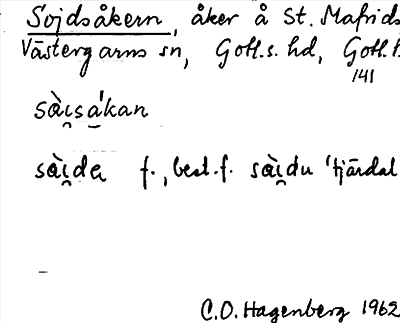 Sojdsåkern, åker å St. Mafrids
Västergarns sn, Gotl. s. hd, Gotl. l.
141
sài̯sákan
sài̯dɐ f., best. f. sài̯du 'tjärdal
C.O. Hagenberg 1962